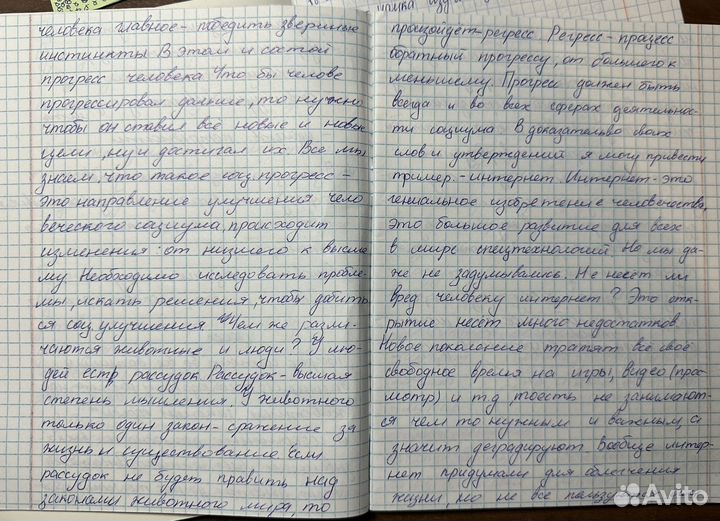 человека главное - победить звериные
инстинкты В этом и состой
прогресс человека Что бы челове
прогрессировал дальше, то нужно
чтобы он ставил всё новые и новые
цели, ну и достигал их. Все мы
знаем, что такое соц. прогресс -
это направление улучшения чело
веческого социума, происходит
изменения: от низшего к высше
му Необходимо исследовать пробле-
мы, искать решения, чтобы добить
ся соц. улучшения Чем же разли-
чаются животные и люди? У лю-
дей есть рассудок. Рассудок - высшая
степень мышления. У животного
только один закон - сражение за
жизнь и существование Если
рассудок не будет править над
законами животного мира, то
произойдет - регресс Регресс - процесс
обратный прогрессу, от большого к
меньшему. Прогресс должен быть
всегда и во всех сферах деятельнос-
ти социума. В доказательво своих
слов и утверждений я могу привести
пример. - интернет Интернет - это
гениальное изобретение человечества,
это большое развитие для всех
в мире спецтехнологий Но мы да-
же не задумывались. Не несёт ли
вред человеку интернет? Это отк-
рытие несёт много недостатков.
Новое поколение тратят всё своё
свободное время на игры, видео (прос
мотр) и т.д, тоесть не занимают-
ся чем то нужным и важным, а
значит деградируют Вообще интер-
нет придумали для облегчения
жизни, но не все
Avito